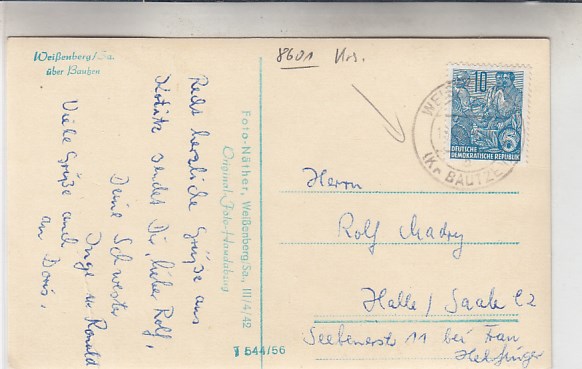 Weißenberg/Sa.
über Bautzen
8601 Krs.
Recht herzliche Grüße aus
Kotitz sendet Dir, lieber Rolf,
Deine Schwester
Inge u. Ronald
Viele Grüße auch
an Doris.
Foto-Näther, Weißenberg/Sa., III/4/42
Original-Foto-Handabzug
T 544/56
10
DEUTSCHE
DEMOKRATISCHE REPUBLIK
WEI
(Kr BAUTZE
Herrn
Rolf Madry
Halle / Saale C2
Seebenerstr 11 bei Frau